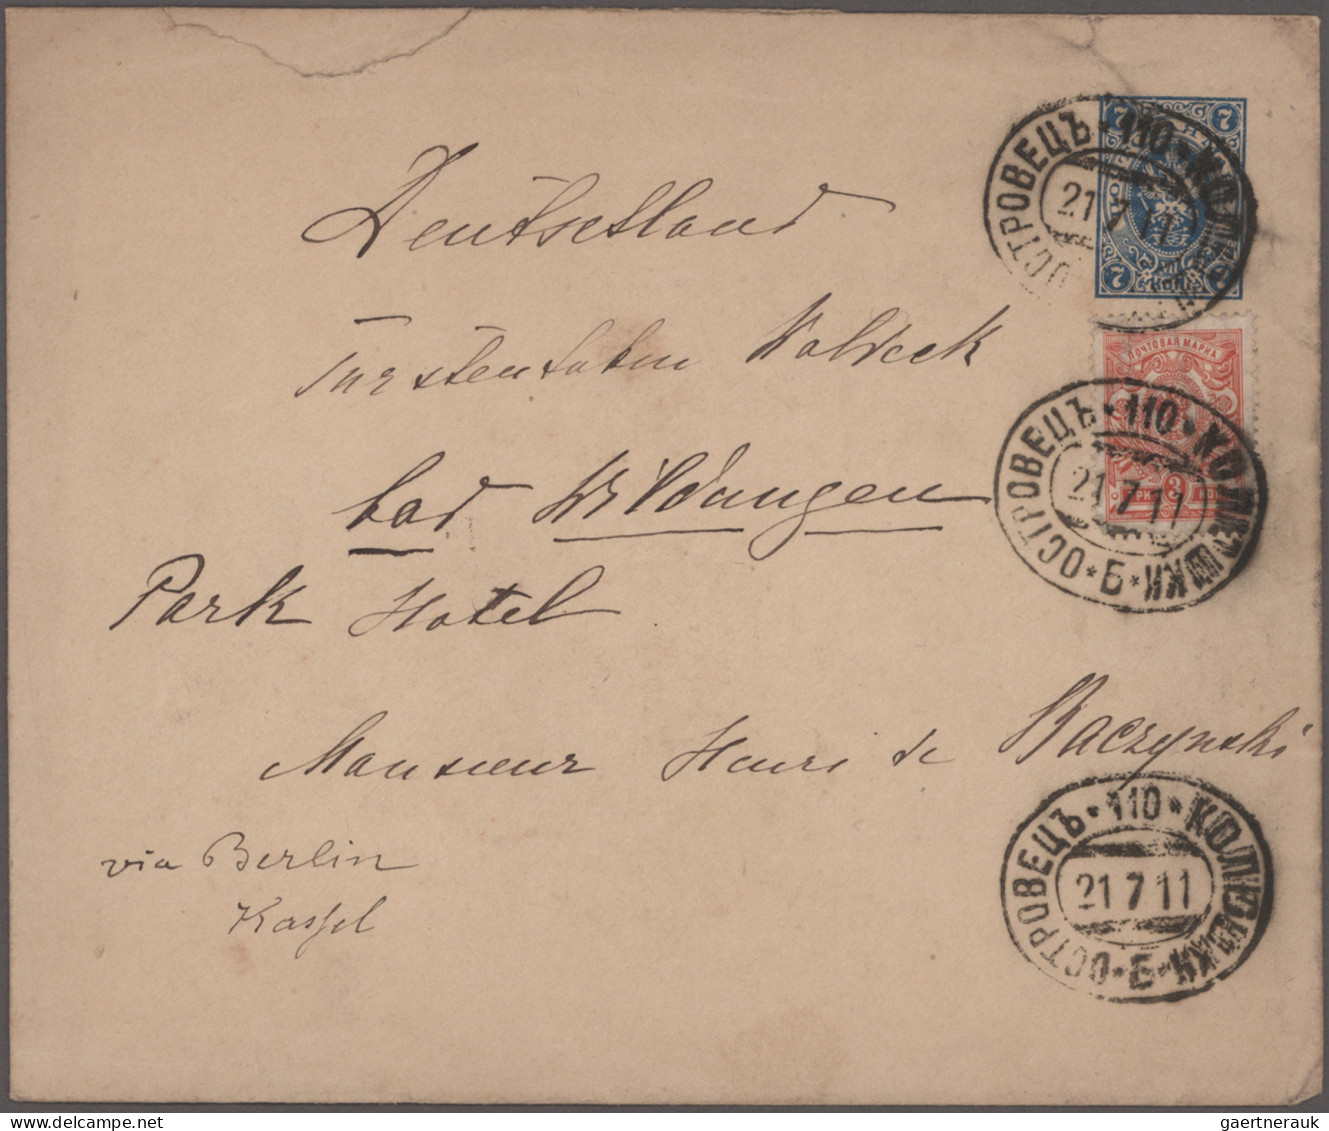 Deutschland
Furstentahm Waldeck
bad Wildungen
Park Hotel
Monsieur Henri de Raczynski
via Berlin
Kassel
7 7
7 7
ОСТРОВЕЦЪ * 110 * КОЛЮШКИ
21 7 11
ПОЧТОВАЯ МАРКА
ТРИ 3 КОП
ОСТРОВЕЦЪ * 110 * КОЛЮШКИ * Б *
21 7 11
ОСТРОВЕЦЪ * 110 * КОЛЮШКИ * Б *
21 7 11
gaertnerauk